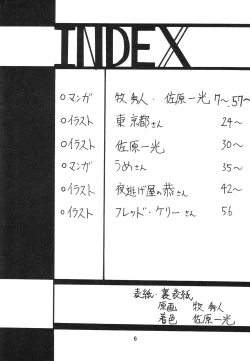 INDEX
○マンガ 牧秀人・佐原一光 7～,57～
○イラスト 東京都さん 24～
○イラスト 佐原一光 30～
○マンガ うめさん 35～
○イラスト 夜逃げ屋の恭さん 42～
○イラスト フレッド・ケリーさん 56
表紙・裏表紙
原画 牧秀人
着色 佐原一光
6